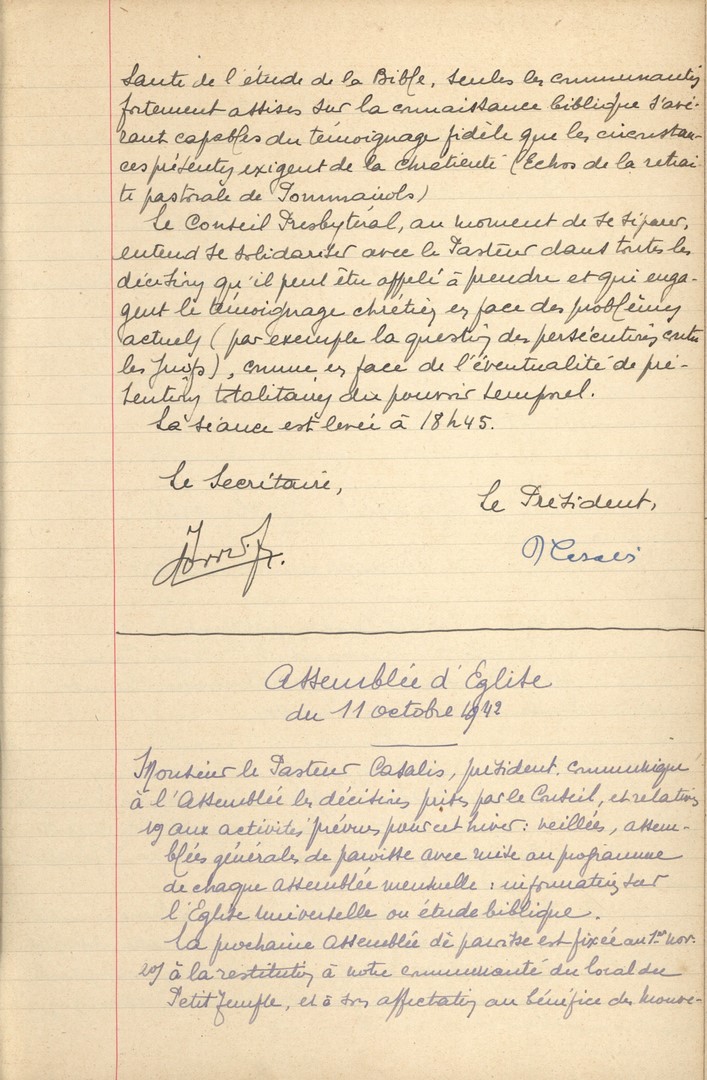 sante de l'étude de la Bible, seules les communautés
fortement assises sur la connaissance biblique s'avé-
rant capables du témoignage fidèle que les circonstan-
ces présentes exigent de la chrétienté (Echos de la retrai-
te pastorale de Pommairols)
Le Conseil Presbytéral, au moment de se séparer,
entend se solidariser avec le Pasteur dans toutes les
décisions qu'il peut être appelé à prendre et qui enga-
gent le témoignage chrétien en face des problèmes
actuels (par exemple la question des persécutions contre
les Juifs), comme en face de l'éventualité de pré-
tentions totalitaires du pouvoir temporel.
La séance est levée à 18h45.
Le Secrétaire,
Le Président,
Assemblée d'Eglise
du 11 octobre 1942
Monsieur le Pasteur Casalis, président, communique
à l'Assemblée les décisions prises par le Conseil, et relatives
1°) aux activités prévues pour cet hiver: veillées, assem-
blées générales de paroisse avec mise au programme
de chaque assemblée mensuelle: informations sur
l'Eglise Universelle ou étude biblique.
La prochaine assemblée de paroisse est fixée au 1er nov.
2°) à la restitution à notre communauté du local du
Petit Temple, et à son affectation au bénéfice des mouve-